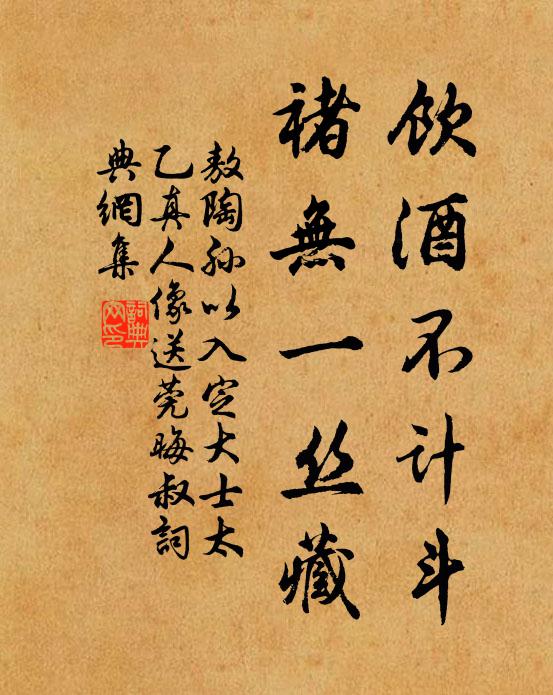 飲酒不计斗
褚無一丝藏
敖陶孙以入定大士太
乙真人像送莞晦叔詞
典網集
詞典網印